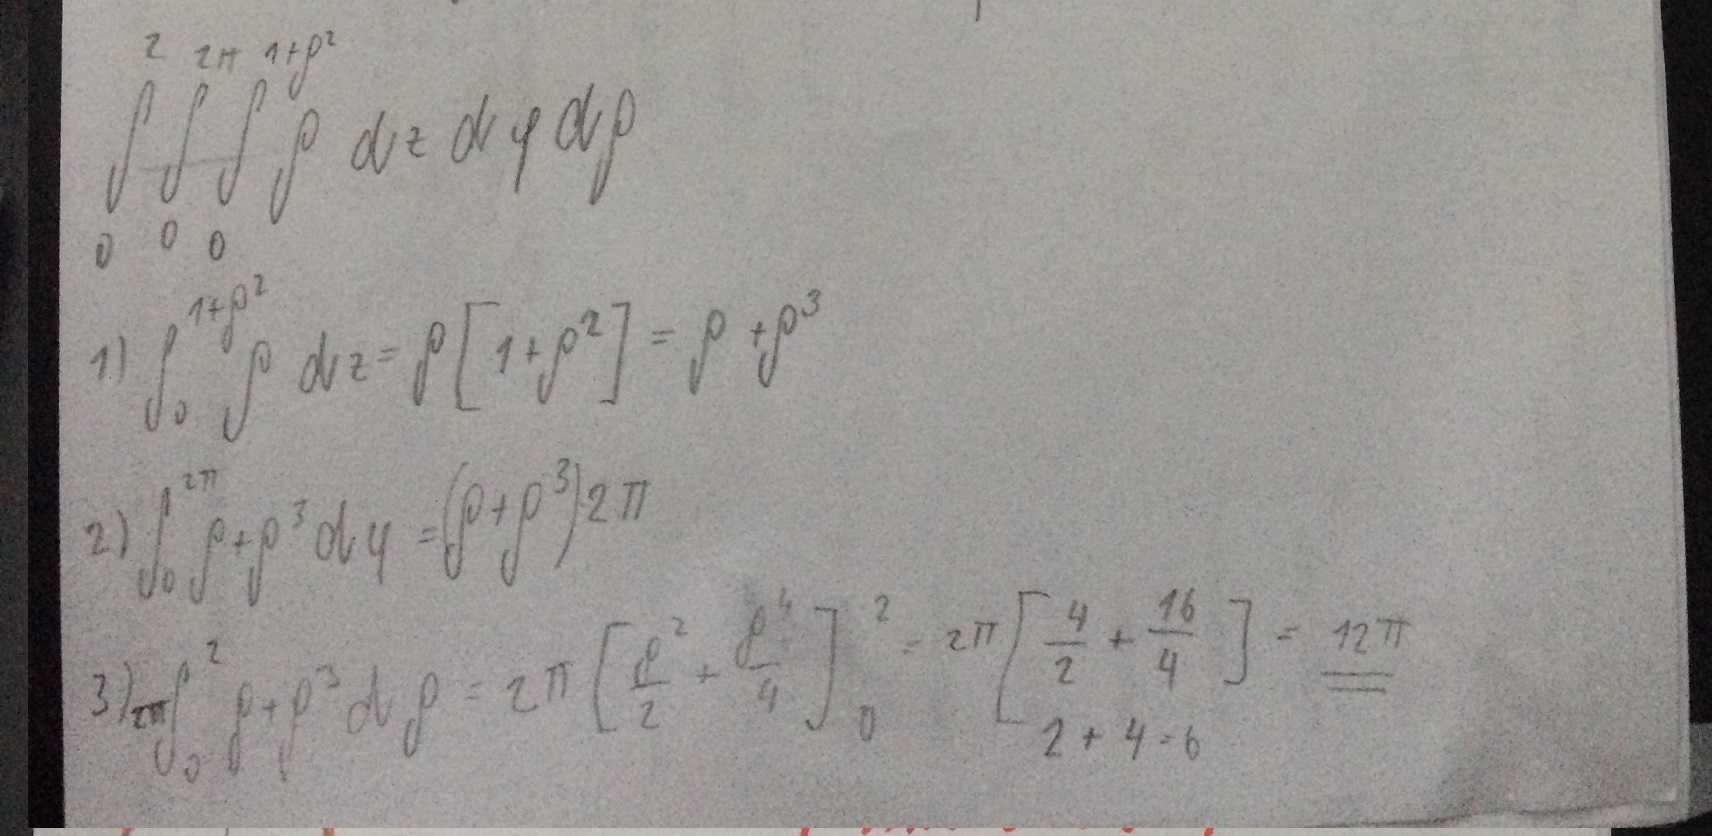 ∫₀² ∫₀^{2π} ∫₀^{1+ρ²} ρ dz dφ dρ
1) ∫₀^{1+ρ²} ρ dz = ρ [1+ρ²] = ρ + ρ³
2) ∫₀^{2π} ρ+ρ³ dφ = (ρ+ρ³) 2π
3) 2π ∫₀² ρ+ρ³ dρ = 2π [ρ²/2 + ρ⁴/4]₀² = 2π [4/2 + 16/4] = 12π
2 + 4 = 6